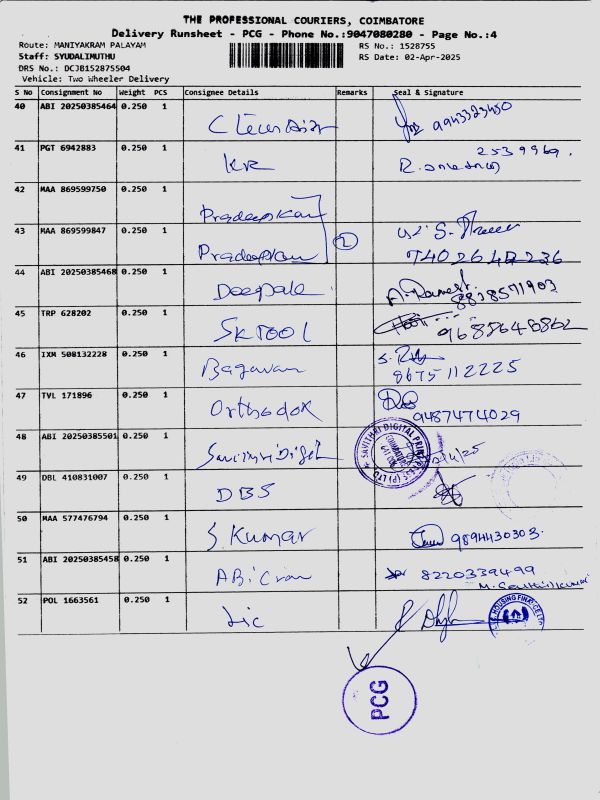 THE PROFESSIONAL COURIERS, COIMBATORE
Delivery Runsheet - PCG - Phone No.:9047080280 - Page No.:4
Route: MANIYAKRAM PALAYAM RS No.: 1528755
Staff: SYUDALIMUTHU RS Date: 02-Apr-2025
DRS No.: DCJB152875504
Vehicle: Two Wheeler Delivery
S No Consignment No Weight PCS Consignee Details Remarks Seal & Signature
40 ABI 20250385464 0.250 1
9943323450
41 PGT 6942883 0.250 1 KR 2539969.
42 MAA 869599750 0.250 1
Pradeepkan
43 MAA 869599847 0.250 1 2
Pradeepkan 7402642236
44 ABI 20250385468 0.250 1
Deepale 8838571903
45 TRP 628202 0.250 1
SKTOOl 9688648862
46 IXM 508132228 0.250 1
Bagavan 8675112225
47 TVL 171896 0.250 1
Orthodox 9487474029
48 ABI 20250385501 0.250 1 SAVITHAI DIGITAL PRINT
49 DBL 410831007 0.250 1
DBS
50 MAA 577476794 0.250 1
S. Kumar 9894430303.
51 ABI 20250385458 0.250 1
8220339499
52 POL 1663561 0.250 1
Lic
PCG